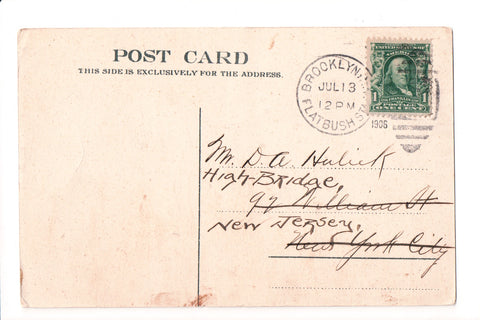 POST CARD
THIS SIDE IS EXCLUSIVELY FOR THE ADDRESS.
BROOKLYN, N.Y.
JUL 13
12 PM
1906
FLATBUSH STA.
ONE CENT
Mr. D. A. Hulick
High-Bridge,
92 William St
New Jersey,
New York City